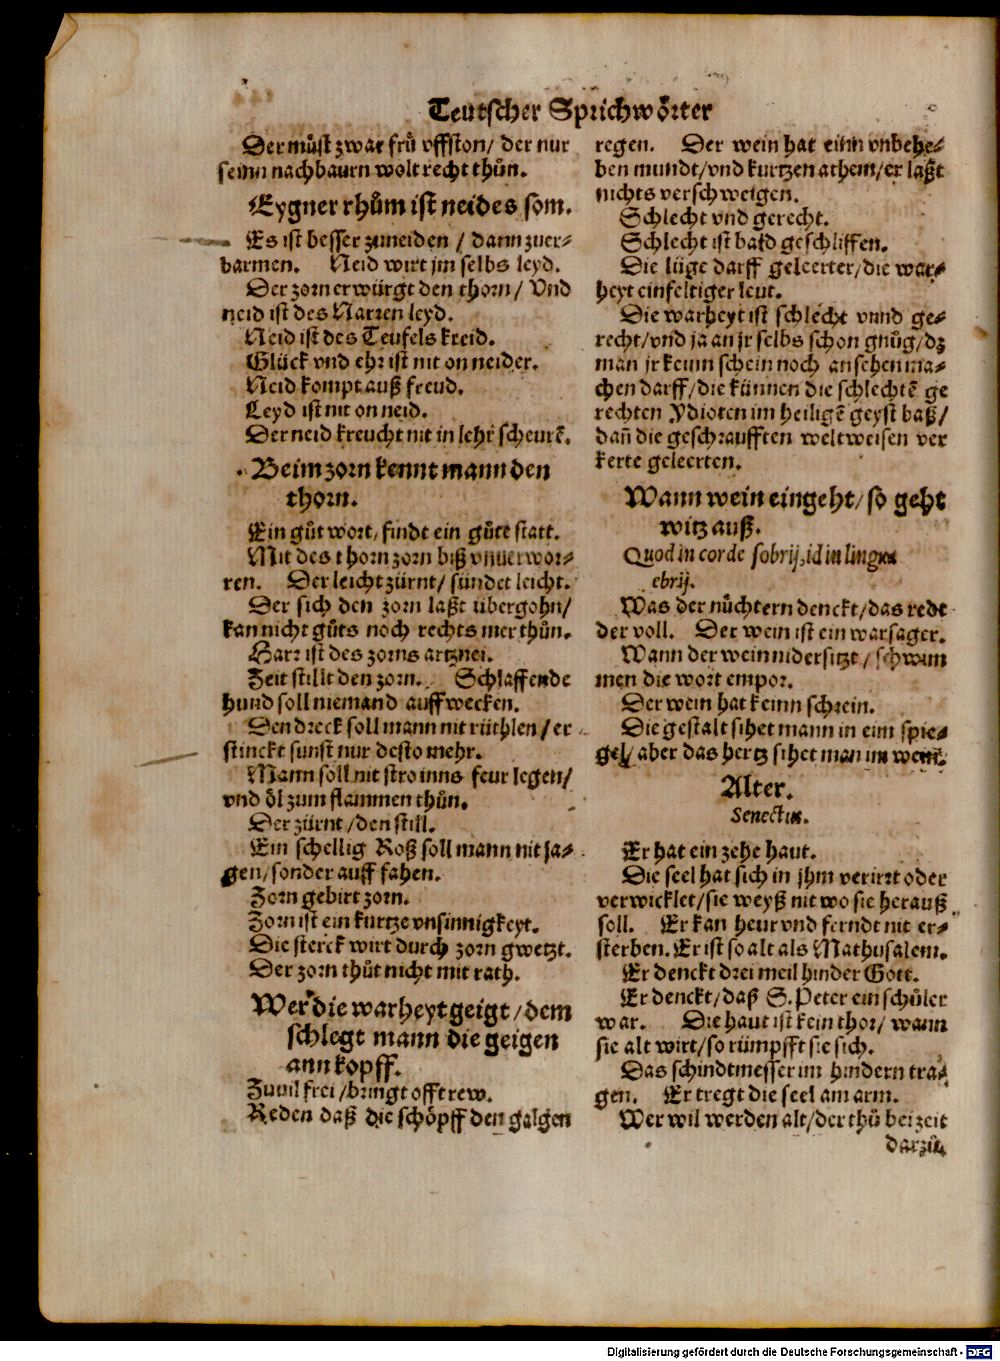 Teutscher Sprichwoͤrter
Der muͤst zwar fruͤ vffston/ der nur
seinn nachbaurn wolt recht thuͦn.
Eygner rhuͦm ist neides som.
Es ist besser zuneiden / dann zuer⸗
barmen. Neid wirt jm selbs leyd.
Der zorn erwürgt den thorn / Vnd
neid ist des Narren leyd.
Neid ist des Teufels kreid.
Glück vnd ehr ist nit on neider.
Neid kompt auß freud.
Leyd ist nit on neid.
Der neid kreucht nit in lehr scheurẽ.
Beim zorn kennt mann den
thorn.
Ein guͦt wort, findt ein guͦte statt.
Mit des thorn zorn biß vnuerwor⸗
ren. Der leicht zürnt/ sündet leicht.
Der sich den zorn laßt übergohn/
kan nicht guͦts noch rechts mer thuͦn.
Harr ist des zorns artznei.
Zeit stillt den zorn. Schlaffende
hund soll niemand auffwecken.
Den dreck soll mann nit rüthlen / er
stinckt sunst nur desto mehr.
Mann soll nit stro inns feur legen/
vnd oͤl zum flammen thuͦn.
Der zürnt / den still.
Ein schellig Roß soll mann nit ja⸗
gen/ sonder auff fahen.
Zorn gebirt zorn.
Zorn ist ein kurtze vnsinnigkeyt.
Die sterck wirt durch zorn gwetzt.
Der zorn thuͦt nicht mit rath.
Wer die warheyt geigt / dem
schlegt mann die geigen
ann kopff.
Zuuil frei / bringt offt rew.
Reden daß die schoͤpff den galgen
regen. Der wein hat einn vnbehe⸗
ben mundt/ vnd kurtzen athem/ er laßt
nichts verschweigen.
Schlecht vnd gerecht.
Schlecht ist bald geschliffen.
Die lüge darff geleerter/ die war⸗
heyt einfeltiger leut.
Die warheyt ist schlecht vnnd ge⸗
recht/ vnd ja an jr selbs schon gnuͦg/ dz
man jr keinn schein noch ansehen ma⸗
chen darff/ die künnen die schlechtẽ ge
rechten Ydioten im heiligẽ geyst baß/
dañ die geschraufften weltweisen ver
kerte geleerten.
Wann wein eingeht/ so geht
witz auß.
Quod in corde sobrij, id in lingua
ebrij.
Was der nuͤchtern denckt/ das redt
der voll. Der wein ist ein warsager.
Wann der wein nidersitzt / schwim
men die wort empor.
Der wein hat keinn schrein.
Die gestalt sihet mann in eim spie⸗
gel/ aber das hertz sihet man im wein.
Alter.
Senectus.
Er hat ein zehe haut.
Die seel hat sich in jhm verirrt oder
verwicklet/ sie weyß nit wo sie herauß
soll. Er kan heur vnd ferndt nit er⸗
sterben. Er ist so alt als Mathusalem.
Er denckt drei meil hinder Gott.
Er denckt/ daß S. Peter ein schuͤler
war. Die haut ist kein thor/ wann
sie alt wirt/ so rümpfft sie sich.
Das schindtmesser im hindern tra⸗
gen. Er tregt die seel am arm.
Wer wil werden alt/ der thuͦ bei zeit
darzuͦ
Digitalisierung gefördert durch die Deutsche Forschungsgemeinschaft - DFG